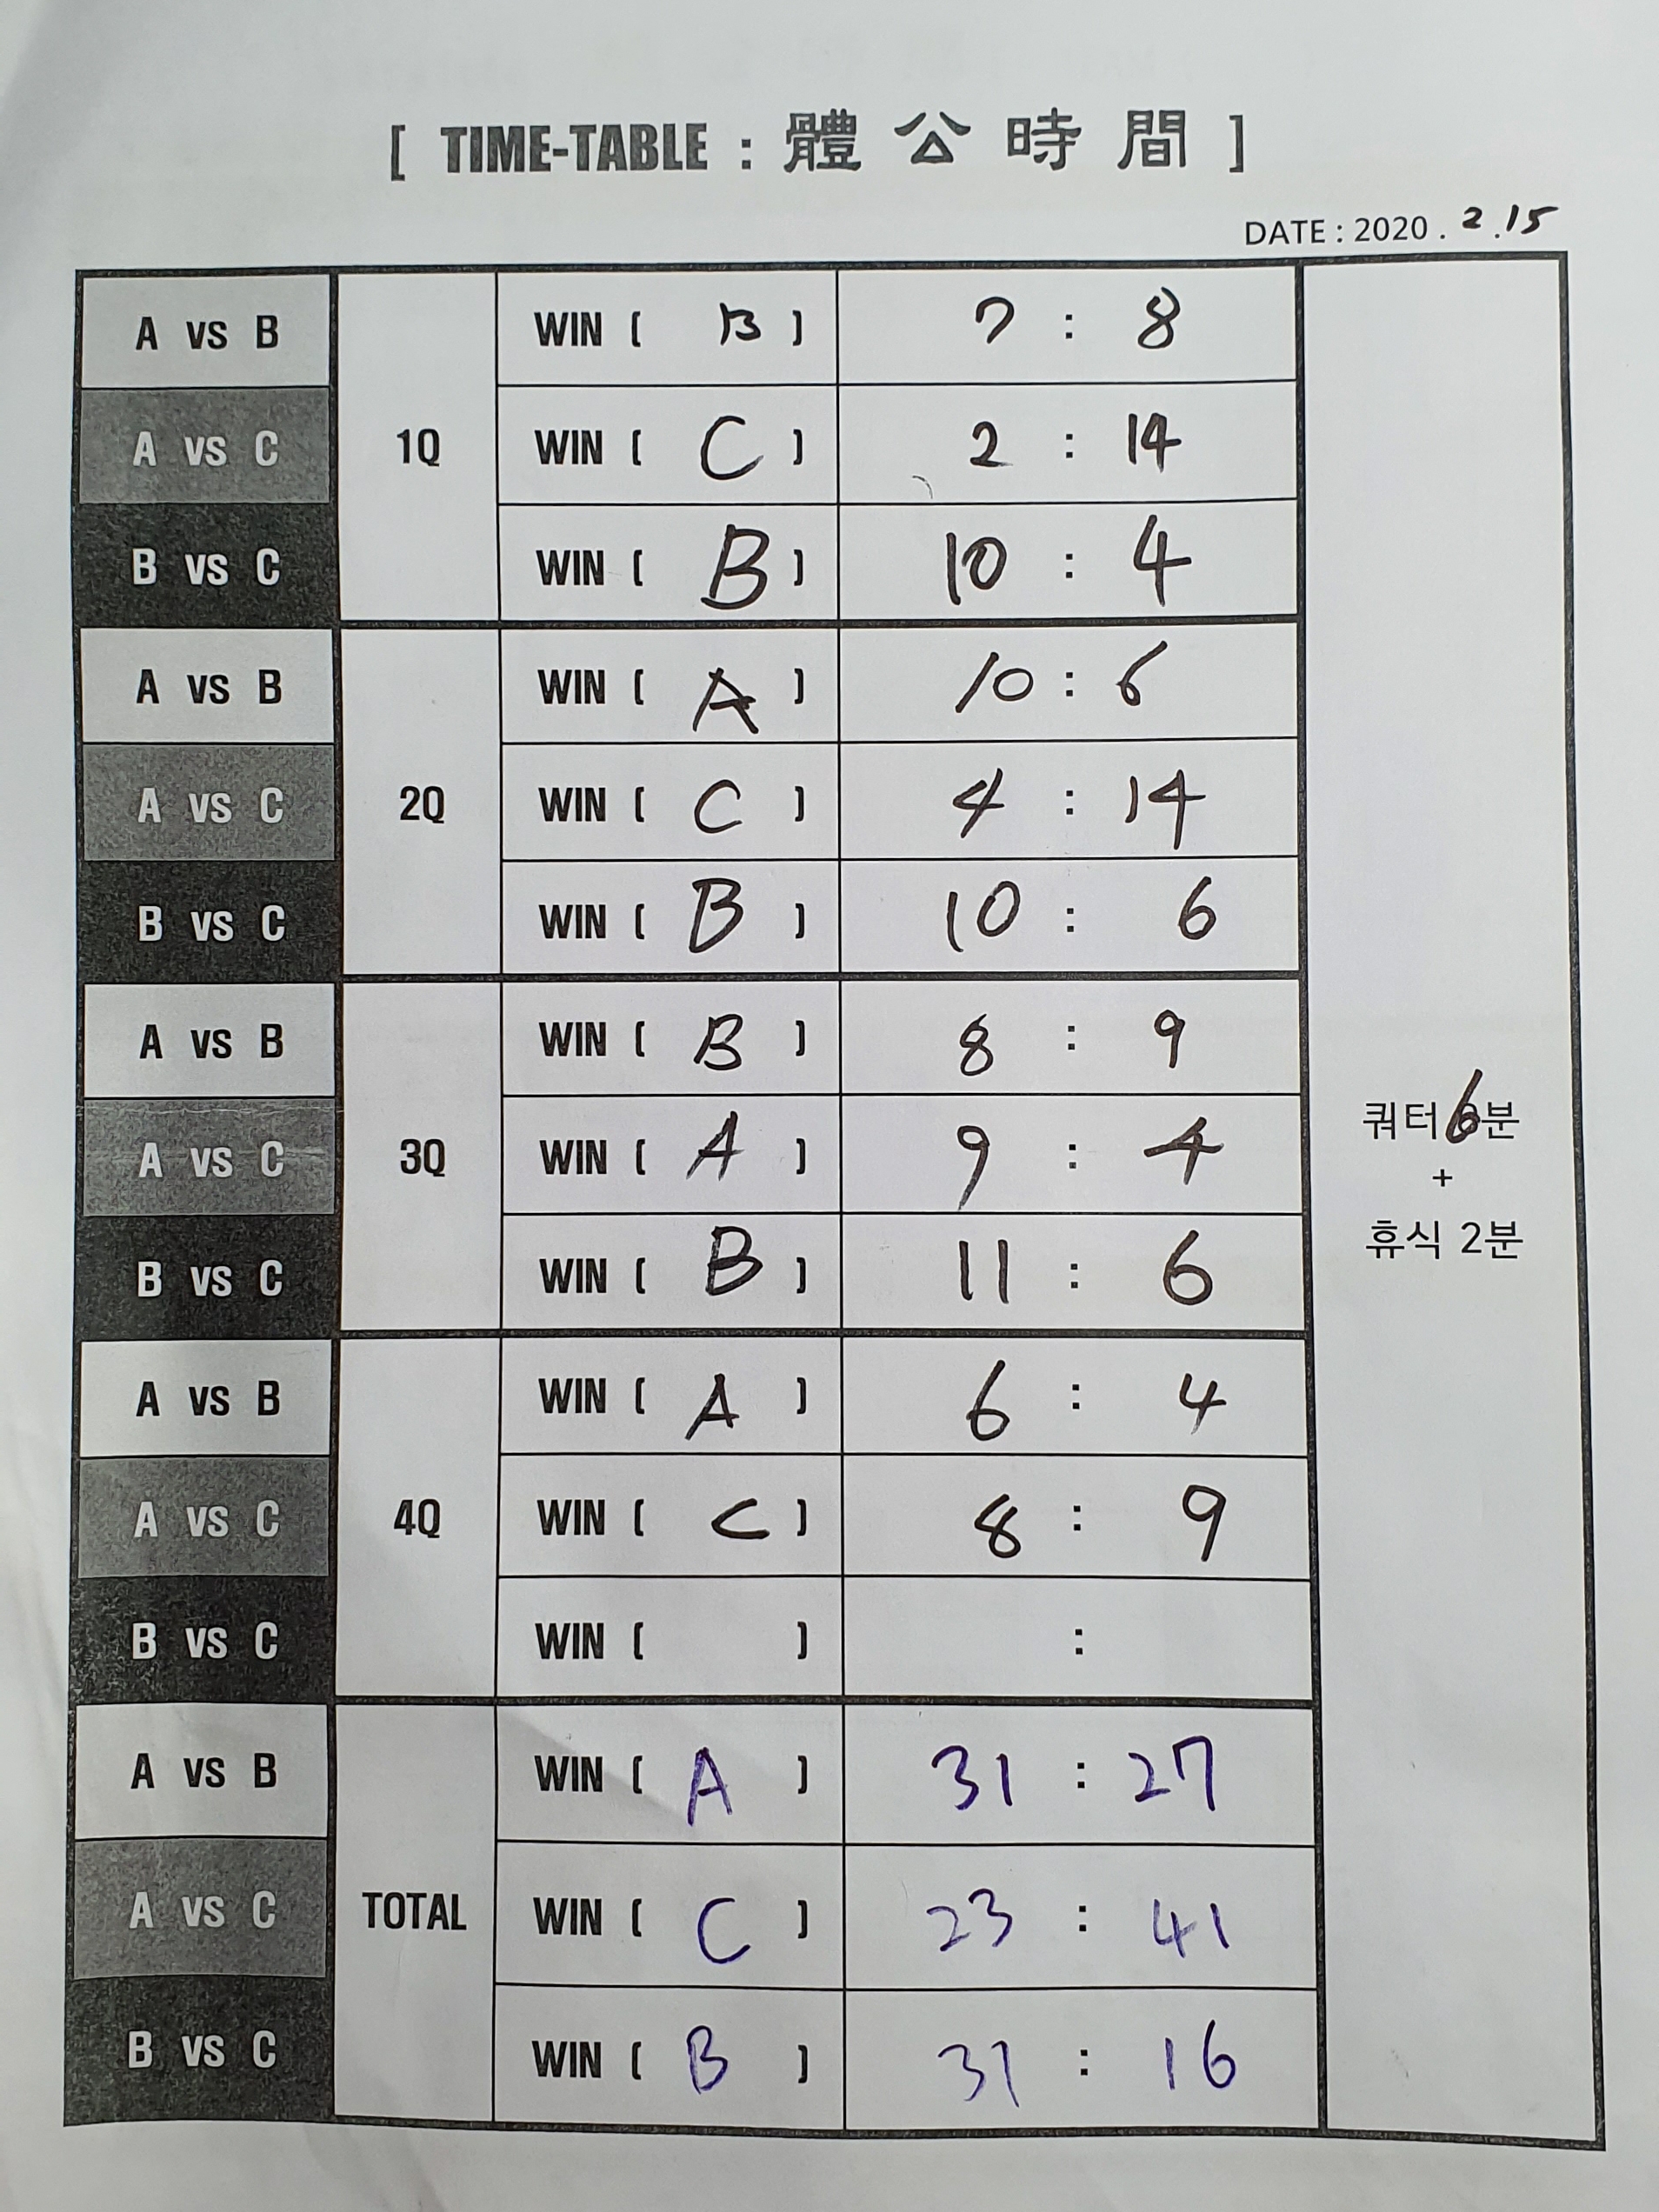 [ TIME-TABLE : 體 公 時 間 ]
DATE : 2020 . 2 . 15
A vs B WIN ( B ) 7 : 8
A vs C 1Q WIN ( C ) 2 : 14
B vs C WIN ( B ) 10 : 4
A vs B WIN ( A ) 10 : 6
A vs C 2Q WIN ( C ) 4 : 14
B vs C WIN ( B ) 10 : 6
A vs B WIN ( B ) 8 : 9
A vs C 3Q WIN ( A ) 9 : 4
B vs C WIN ( B ) 11 : 6
A vs B WIN ( A ) 6 : 4
A vs C 4Q WIN ( C ) 8 : 9
B vs C WIN ( ) :
A vs B WIN ( A ) 31 : 27
A vs C TOTAL WIN ( C ) 23 : 41
B vs C WIN ( B ) 31 : 16
쿼터 6분
+
휴식 2분